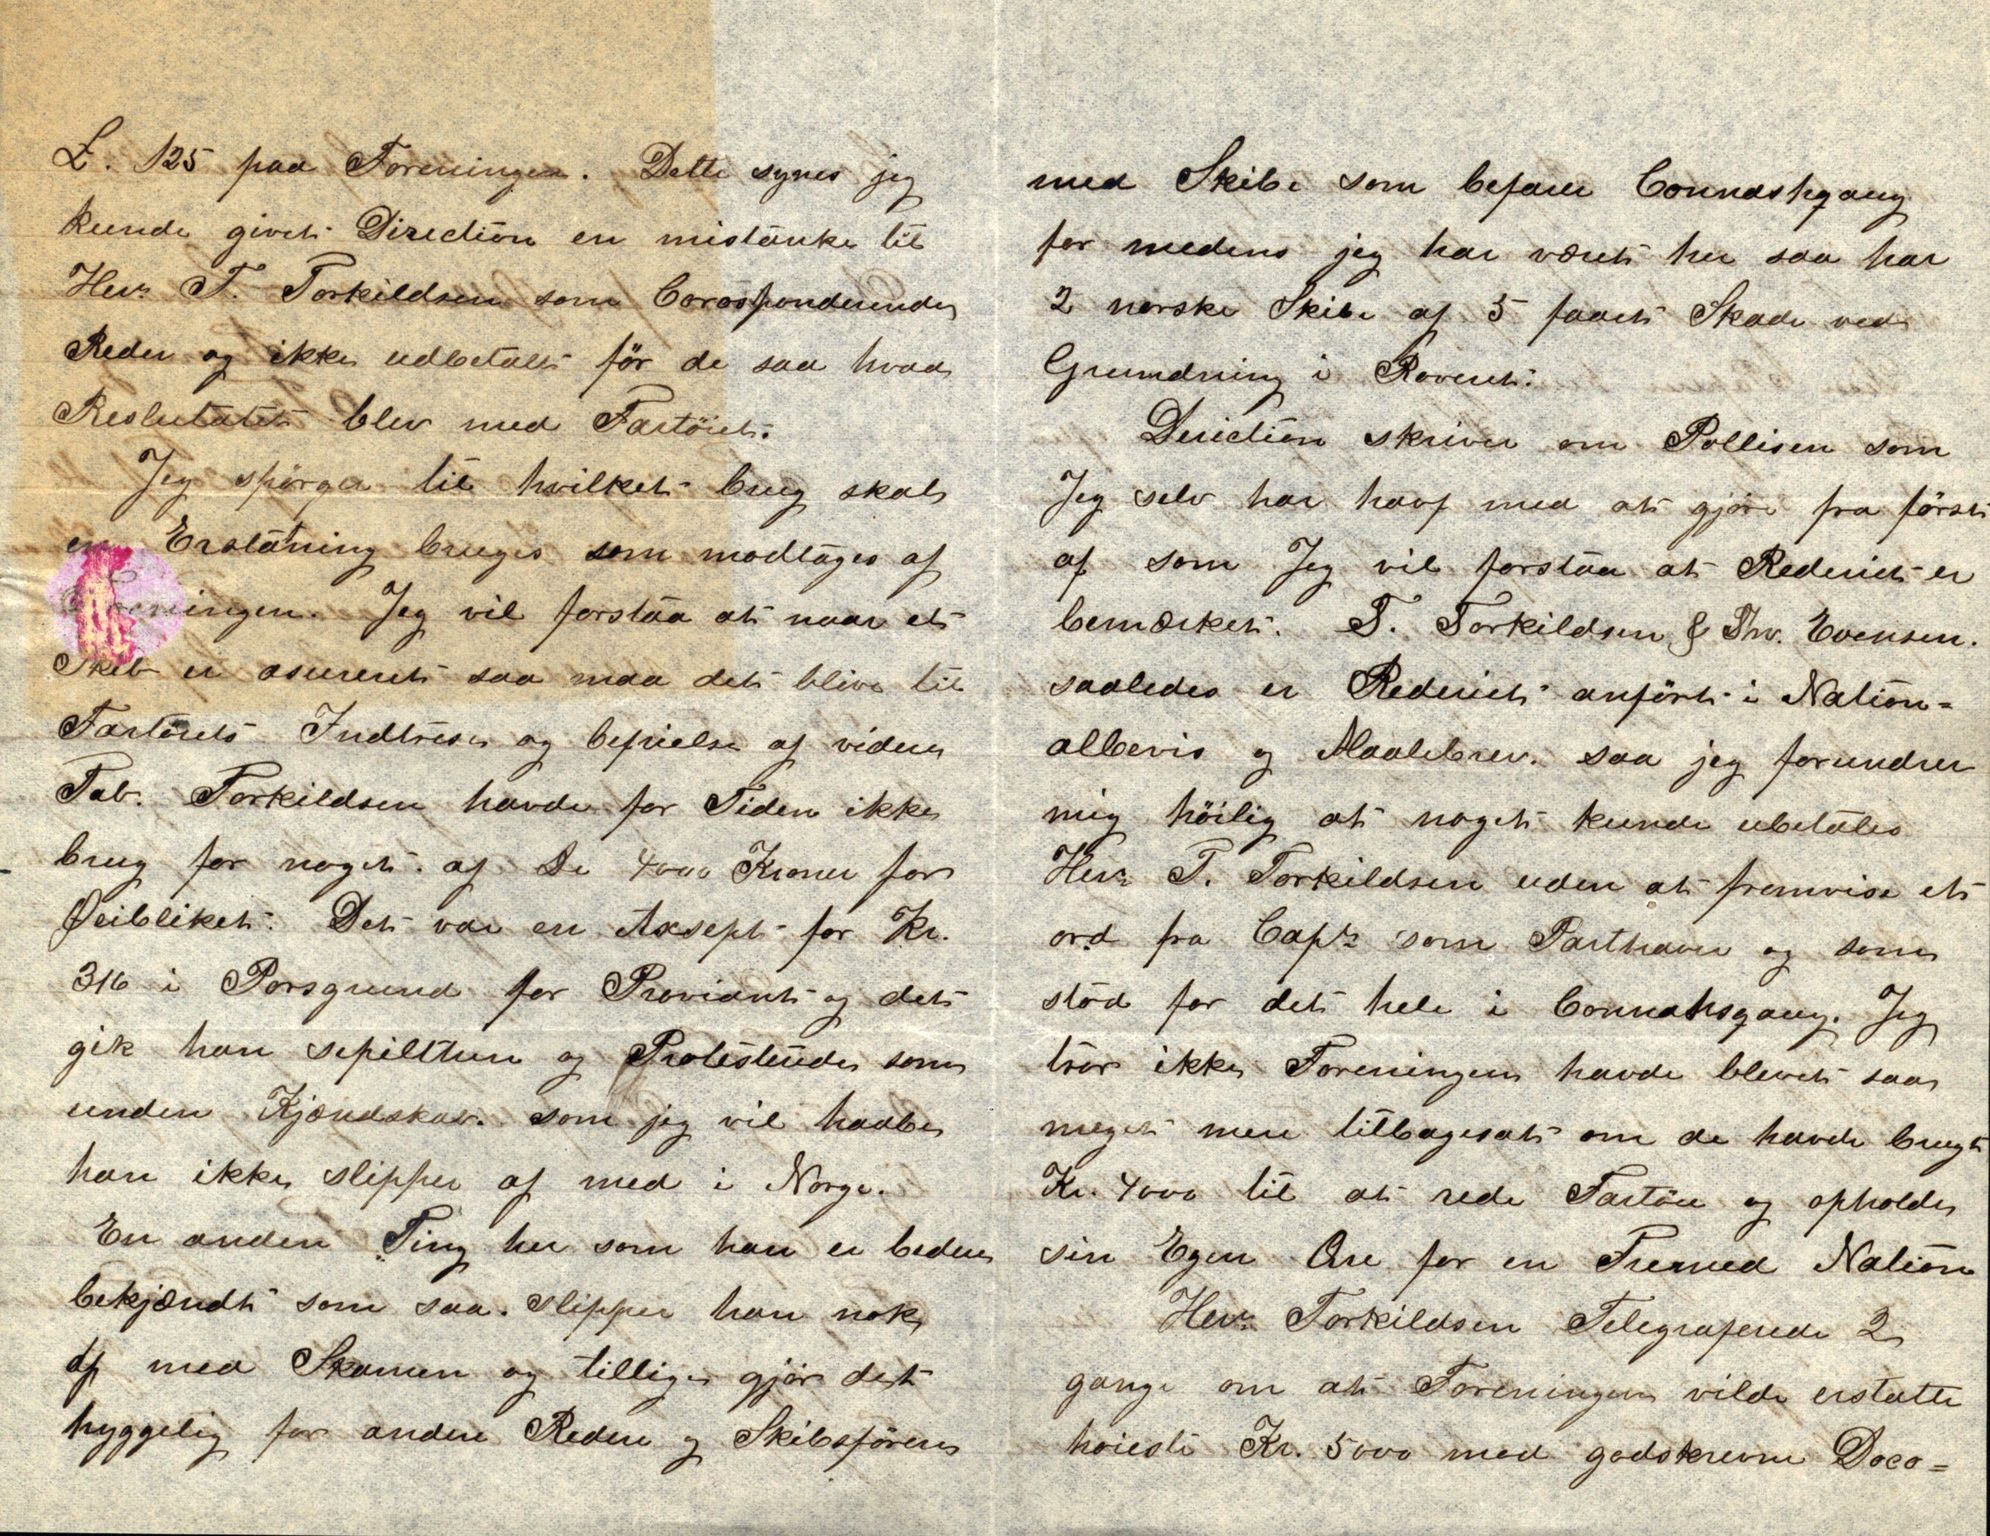 £. 125 paa Foreningen. Dette synes jeg
kunde givet Direction en mistanke til
Herr T. Torkildsen som Corosponderende
Reder og ikke udbetalt før de saa hvad
Reslutatet blev med Fartöiet.
Jeg spörger til hvilket brug skal
en Erstatning bruges som modtages af
Foreningen. Jeg vil forstaa at naar et
Skib er asureret saa maa det blive til
Fartöiets Indtrese og befrielse af videre
Tab. Torkildsen havde for Tiden ikke
brug for noget af De 4000 Kroner for
Øiebliket. Det var en Axsept for Kr.
316 i Porsgrund for Proviant og det
gik han og Protesterede som
under Kjændskab. som jeg vil haabe
han ikke slipper af med i Norge.
En anden Ting her som han er bedere
bekjændt som saa. slipper han nok
af med Skammen og tillige gjör det
hyggelig for andere Redere og Skibsförere
med Skibe som befarer Connashqauy
for medens jeg har været her saa har
2 norske Skibe af 5 faaet Skade ved
Grundning i Roveret.
Diriction skriver om Pollisen som
Jeg selv har havt med at gjöre fra först
af som Jeg vil forstaa at Rederiet er
bemærket. T. Torkildsen & Thv. Evensen.
saaledes er Rederiet anfört i Nation=
albevis og Maalebrev. saa jeg forundrer
mig höilig at noget kunde ubetales
Herr T. Torkildsen uden at fremvise et
ord fra Captn som Parthaver og som
stöd for det hele i Connahsqauy. Jeg
tror ikke Foreningen havde blevet saa
meget mere tilbagesat om de havde brugt
Kr. 4000 til at rede Fartöie og opholde
sin Egen Ære for en Fremed Nation
Herr Torkildsen Telegraferede 2
gange om at Foreningen vilde erstatte
höieste Kr. 5000 mod godskrevne Doco=